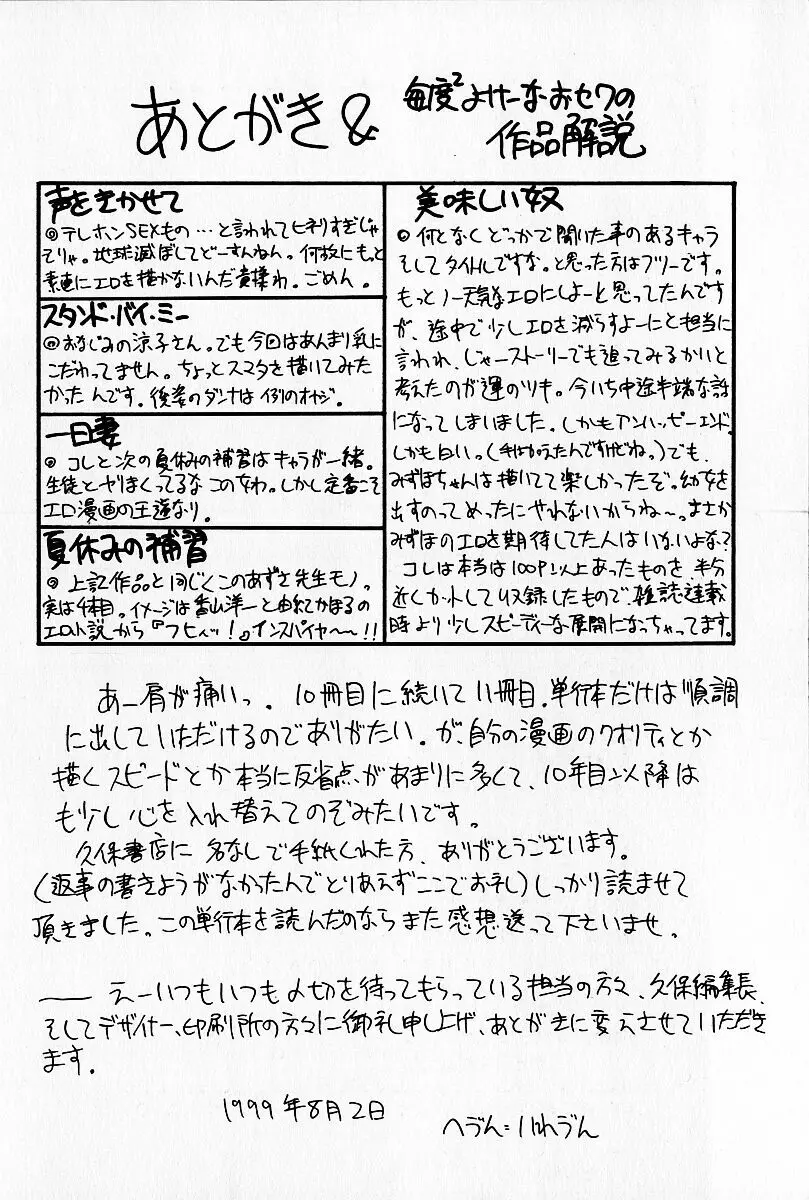 あとがき&
毎度²よけーなおセワの
作品解説
声をきかせて
◎テレホンSEXもの…と言われてヒネリすぎじゃ
そりゃ。地球滅ぼしてどーすんねん。何故にもっと
素直にエロを描かないんだ貴様わ。ごめん。
スタンド・バイ・ミー
◎おなじみの涼子さん。でも今回はあんまり乳に
こだわってません。ちょっとスマタを描いてみた
かったんです。後姿のダンナは例のオヤジ。
一日妻
◎コレと次の夏休みの補習はキャラが一緒。
生徒とヤりまくってるなこの女わ。しかし定番こそ
エロ漫画の王道なり。
夏休みの補習
◎上記作品と同じくこのあずさ先生モノ。
実は4本目。イメージは香山洋一と由紀かほるの
エロ小説から『フヒィッ!』インスパイヤ〜〜!!
美味しい奴
◎何となくどっかで聞いた事のあるキャラ
そしてタイトルですな。と思った方はフツーです。
もっとノー天気なエロにしよーと思ってたんです
が、途中で少しエロを減らすよーにと担当に
言われ、じゃーストーリーでも追ってみるかいと
考えたのが運のツキ。今いち中途半端な話
になってしまいました。しかもアンハッピーエンド。
しかも白い。(手はかえたんですけどね。)でも、
みずほちゃんは描いてて楽しかったぞ。幼女を
出すのってめったにやれないからね〜。まさか
みずほのエロを期待してた人はいないよな?
コレは本当は100P以上あったものを半分
近くカットして収録したもので、雑誌連載
時より少しスピーディーな展開になっちゃってます。
あー肩が痛いっ。10冊目に続いて11冊目。単行本だけは順調
に出していただけるのでありがたい。が、自分の漫画のクオリティとか
描くスピードとか本当に反省点があまりに多くて、10年目以降は
も少し心を入れ替えてのぞみたいです。
久保書店に名なしで手紙くれた方、ありがとうございます。
(返事の書きようがなかったんでとりあえずここでお礼)しっかり読ませて
頂きました。この単行本を読んだのならまた感想送って下さいませ。
―― えーいつもいつも〆切を待ってもらっている担当の方々、久保編集長、
そしてデザイナー、印刷所の方々に御礼申し上げ、あとがきに変えさせていただき
ます。
1999年8月2日
へづん=はれづん